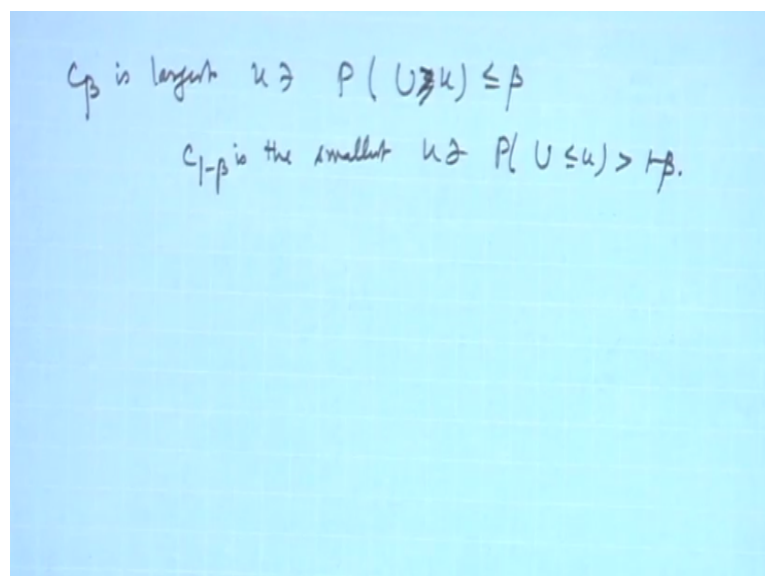 C_β is largest u ∋ P( U ≥ u) ≤ β
C_{1-β} is the smallest u ∋ P( U ≤ u) > 1-β.